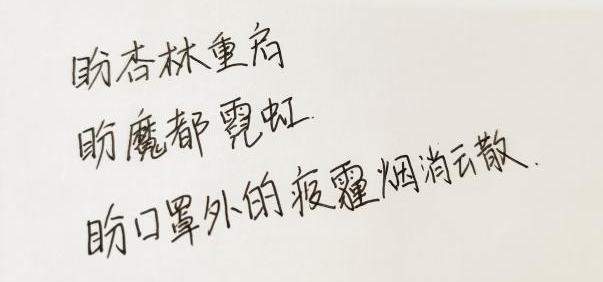 盼杏林重启
盼魔都霓虹.
盼口罩外的疫霾烟消云散.